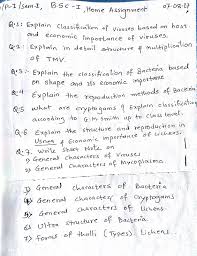 P-I/Sem-I, B.SC-I, Home Assignment 07-08-21
Q.1: Explain Classification of Viruses based on host
and economic importance of viruses.
Q.2: Explain in detail structure & multiplication
of TMV.
Q.3: Explain the classification of Bacteria based
on shape and its economic importance
Q.4 Explain the reproduction methods of Bacteria
Q.5 what are cryptograms & Explain classification
according to G.M Smith up to class level.
Q.6 Explain the structure and reproduction in
Usnea & economic importance of Lichens.
Q.7. write Short Note on
1) General characters of Viruses
2) General characters of Mycoplasma
3) General characters of Bacteria
4) General characters of Cryptogams
5) General characters of Lichens
6) Ultra structure of Bacteria
7) Forms of thalli (Types) Lichens